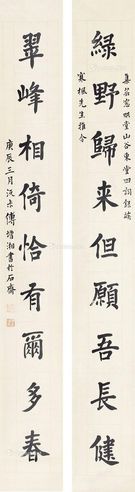 綠野歸来但願吾長健
集若窓明堂山谷東堂四詞録端
寒楓先生雅令
翠峰相倚恰有爾多春
庚辰三月沅尗傅增湘書於石齋